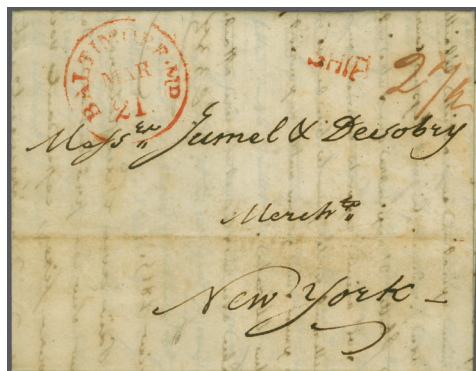 BALTIMORE MD
MAR
21
SHIP
27½
Messrs Jumel & Desobry
Merchts
New York